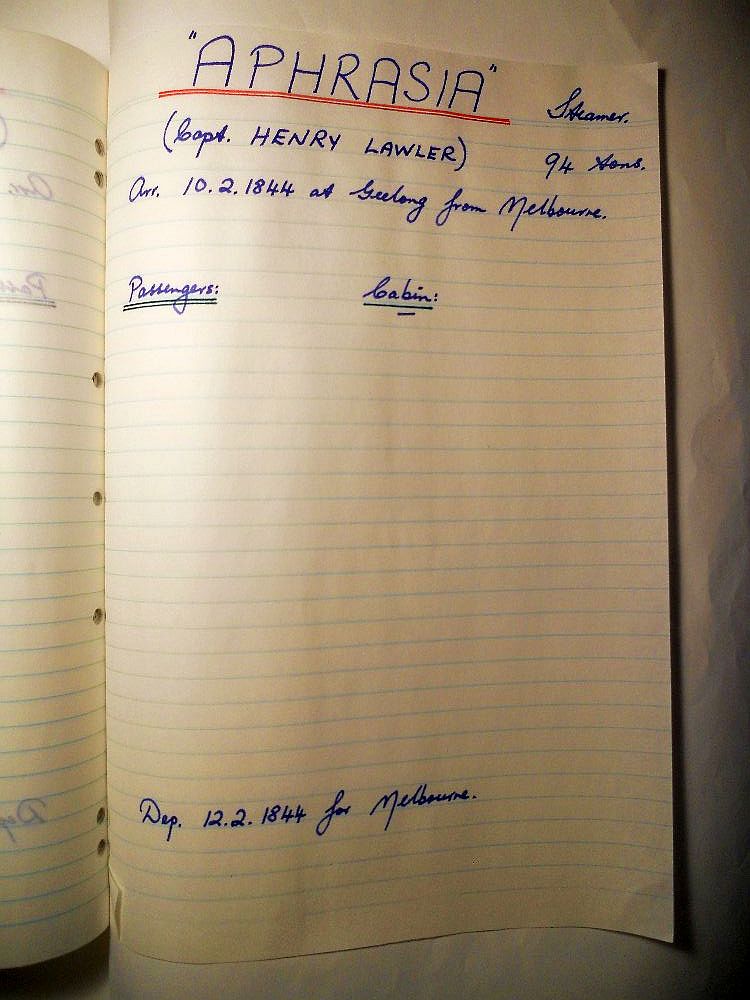 "APHRASIA"
Steamer.
(Capt. HENRY LAWLER)
94 tons.
Arr. 10.2.1844 at Geelong from Melbourne.
Passengers: Cabin:
Dep. 12.2.1844 for Melbourne.